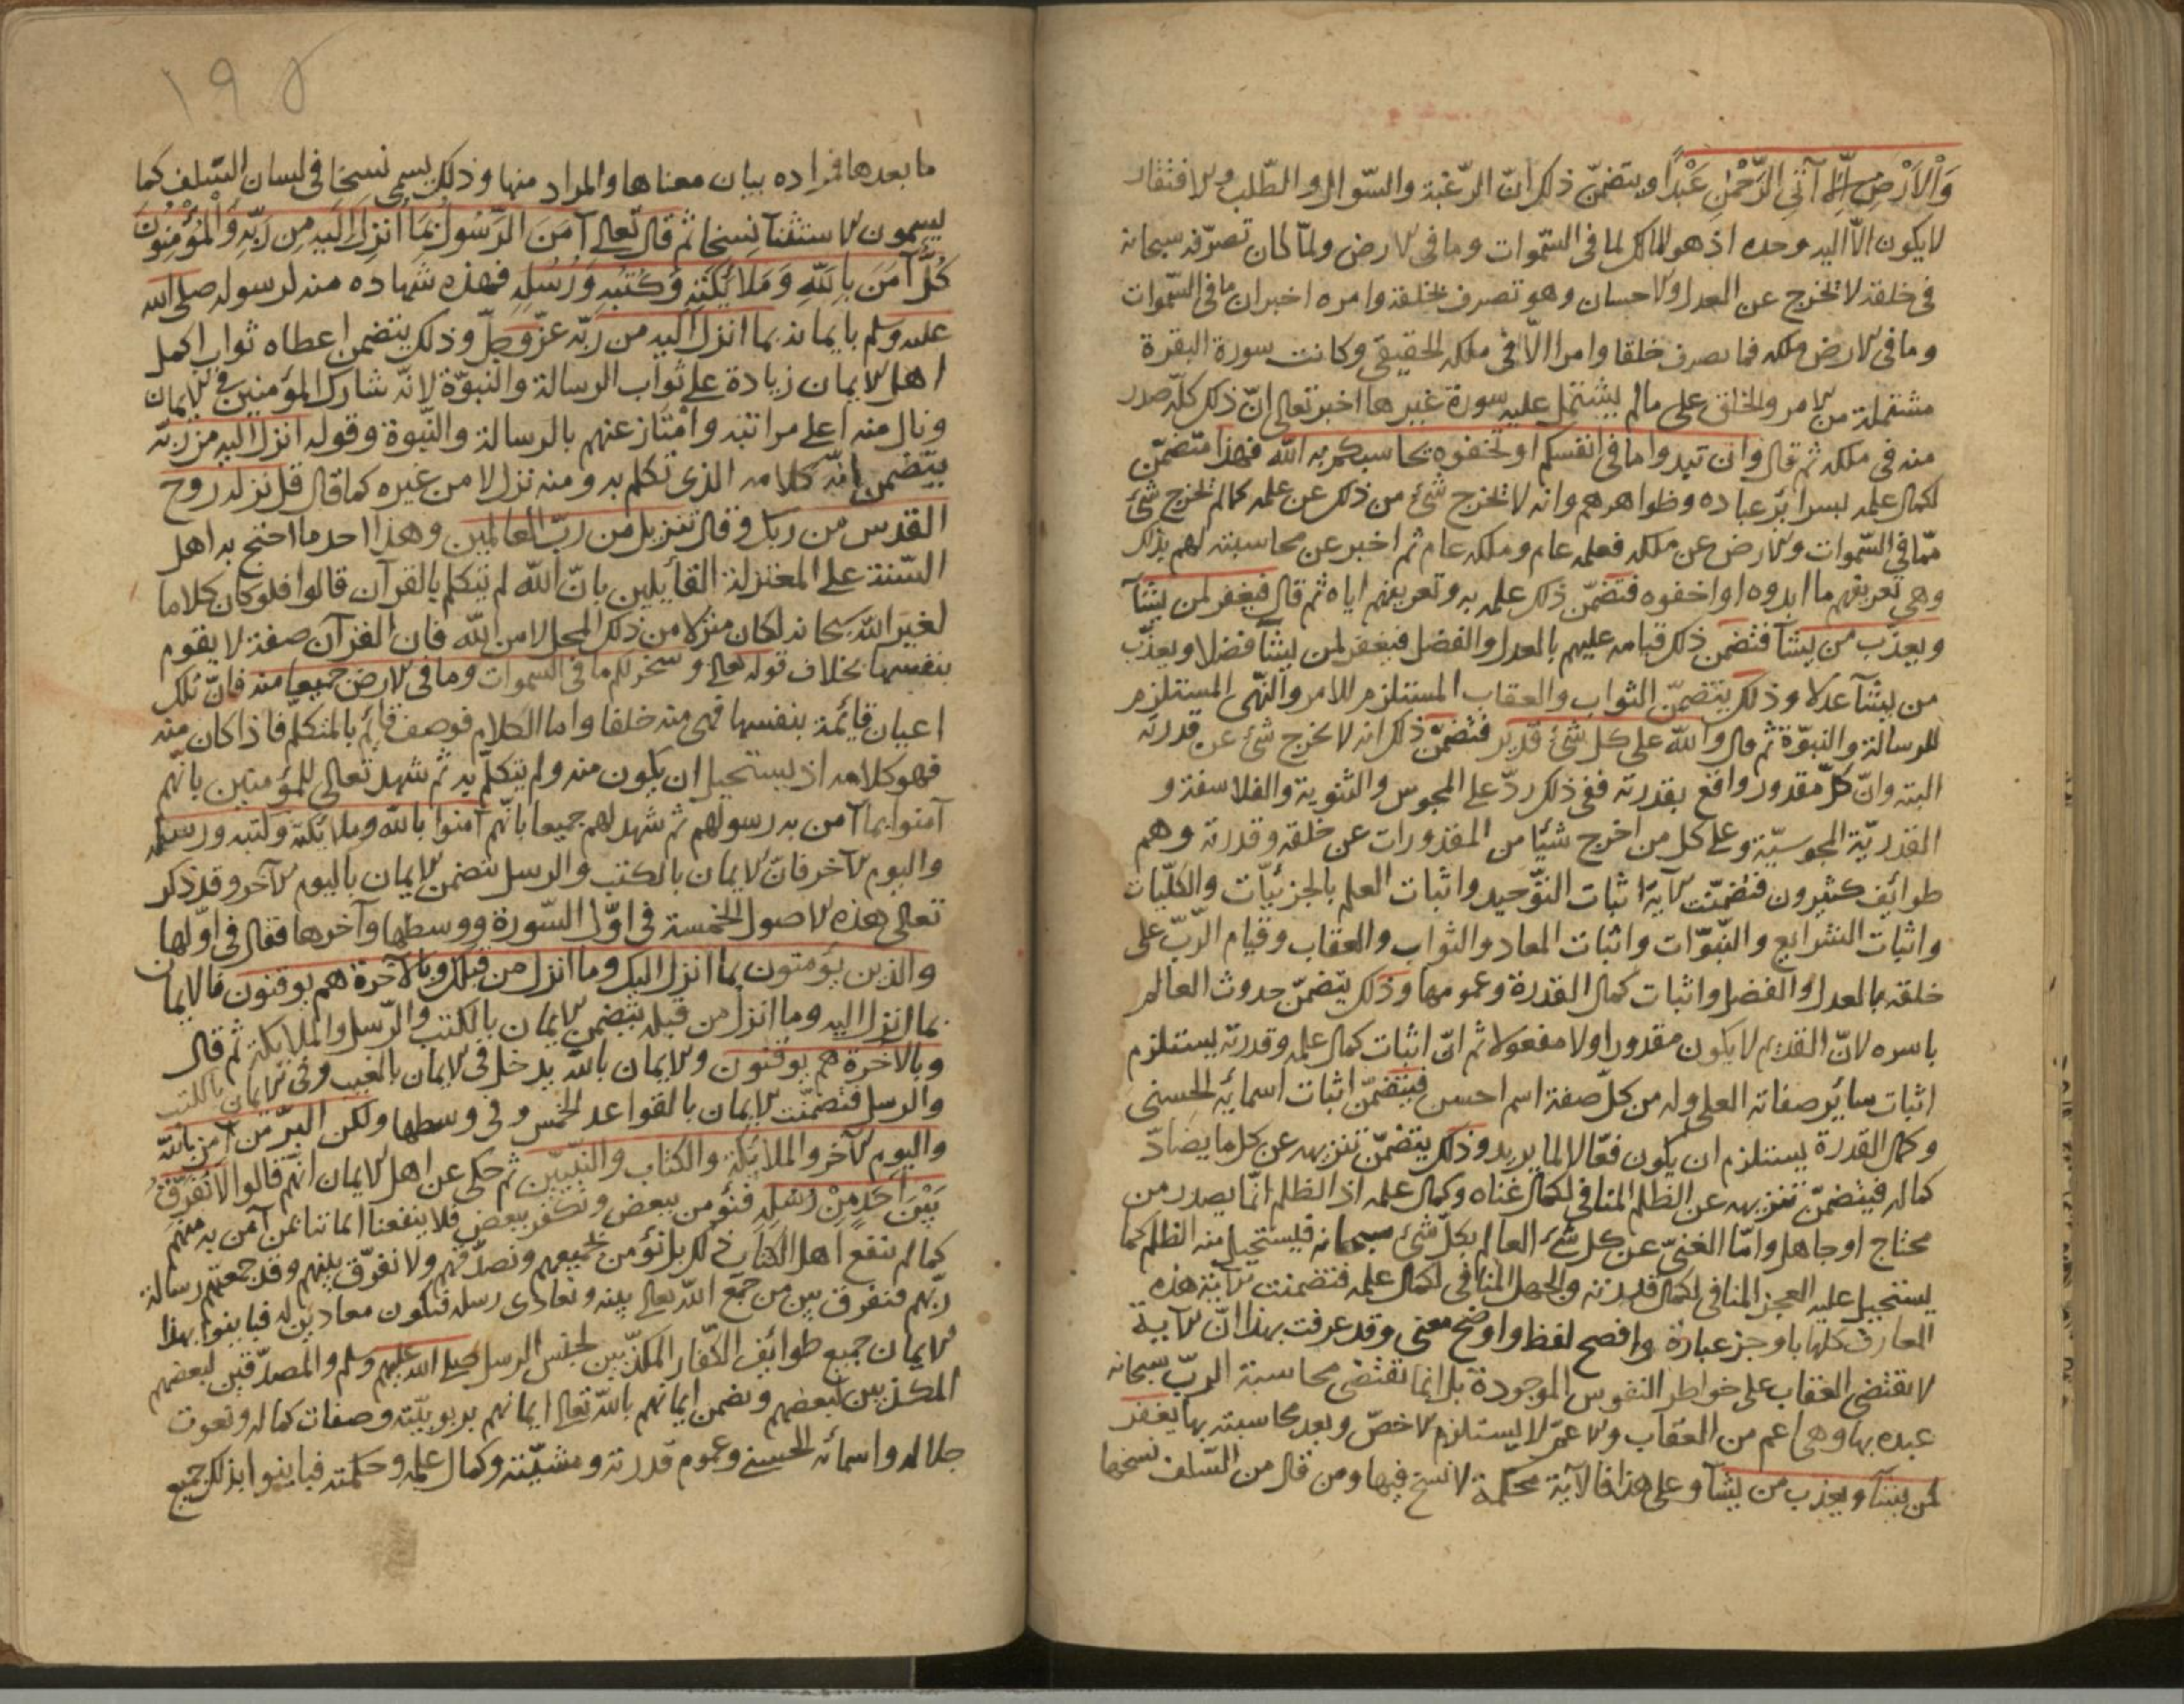 وَالْاَرْضِ اِلَّا آتِي الرَّحْمٰنِ عَبْدًا ويتضمّن ذلك انّ الرّغبة والسّوال والطّلب والافتقار
لا يكون الّا اليه وحده اذ هو المالك لما فى السّموات وما فى الارض ولمّا كان تصرّفه سبحانه
فى خلقه لا تخرج عن العدل والاحسان وهو تصرف بخلقه وامره اخبر ان ما فى السّموات
وما فى الارض ملكه فما تصرف خلقا وامرا الّا فى ملكه الحقيقى وكانت سورة البقرة
مشتملة من الامر والخلق على مالم يشتمل عليه سورة غيرها اخبر تعالى انّ ذلك كلّه صدر
منه فى ملكه ثم قال وان تبدوا ما فى انفسكم او تخفوه يحاسبكم به الله فهذا متضمّن
لكمال علمه بسرائر عباده وظواهرهم وانه لا تخرج شئ من ذلك عن علمه كمالم تخرج شئ
ممّا فى السّموات والارض عن ملكه فعلمه عام وملكه عام ثم اخبر عن محاسبته لهم بذلك
وهى تعريفهم ما ابدوه او اخفوه فتضمّن ذلك علمه به وتعريفهم اياه ثم قال فيغفر لمن يشآ
ويعذّب من يشآ فتضمن ذلك قيامه عليهم بالعدل والفضل فيغفر لمن يشآ فضلا ويعذّب
من يشآ عدلا وذلك يتضمّن الثواب والعقاب المستلزم للامر والنّهى المستلزم
للرسالة والنبوّة ثم قال والله على كل شئ قدير فتضمّن ذلك انه لا يخرج شئ عن قدرته
البته وانّ كلّ مقدور واقع بقدرته ففى ذلك ردّ على المجوس والثنوية والفلاسفة و
القدريّة المجوسيّة وعلى كل من اخرج شيئا من المقدورات عن خلقه وقدرته وهم
طوائف كثيرون فتضمّنت الآية اثبات التوّحيد واثبات العلم بالجزئيّات والكلّيات
واثبات الشرايع والنّبوّات واثبات المعاد والثواب والعقاب وقيام الرّبّ على
خلقه بالعدل والفضل واثبات كمال القدرة وعمومها وذلك يتضمّن حدوث العالم
باسره لانّ القديم لا يكون مقدورا ولا مفعولا ثم انّ اثبات كمال علمه وقدرته يستلزم
اثبات سائر صفاته العلى وله من كلّ صفة اسم احسن فيتضمّن اثبات اسمائه الحسنى
وكمال القدرة يستلزم ان يكون فعّالا لما يريد وذلك يتضمّن تنزيهه عن كل ما يضادّ
كماله فيتضمّن تنزيهه عن الظلم المنافى لكمال غناه وكمال علمه اذ الظلم انّما يصدر من
محتاج او جاهل وامّا الغنىّ عن كل شئ العالم بكلّ شئ سبحانه فيستحيل منه الظلم كما
يستحيل عليه العجز المنافى لكمال قدرته والجهل المنافى لكمال علمه فتضمنت الآية هذه
المعارف كلها باوجز عبارة وافصح لفظ واوضح معنى وقد عرفت بهذا انّ الآية
لا تقتضى العقاب على خواطر النفوس الموجودة بل انما تقتضى محاسبة الربّ سبحانه
عبده بها وهى اعم من العقاب والاعمّ لا يستلزم الاخصّ وبعد محاسبته بها يغفر
لمن يشآ ويعذب من يشآ وعلى هذا فالآية محكمة لا نسخ فيها ومن قال من السّلف نسخها
١٩٥
ما بعدها فمراده بيان معناها والمراد منها وذلك يسمى نسخا فى لسان السّلف كما
يسمون الاستثنآ نسخا ثم قال تعالى آمَنَ الرَّسُولُ بِمَا اُنْزِلَ اِلَيْهِ مِن رَبِّهِ وَالْمُؤْمِنُونَ
كُلٌّ آمَنَ بِاللّٰهِ وَمَلَائِكَتِهِ وَكُتُبِهِ وَرُسُلِهِ فهذه شهاده منه لرسوله صلى الله
عليه وسلم بايمانه بما انزل اليه من ربّه عزّ وجلّ وذلك يتضمن اعطاه ثواب اكمل
اهل الايمان زيادة على ثواب الرسالة والنبوّة لانّه شارك المؤمنين فى الايمان
ونال منه اعلى مراتبه وامتاز عنهم بالرسالة والنّبوة وقوله انزل اليه من ربّه
يتضمن انّه كلامه الذى تكلم به ومنه نزل لا من غيره كما قال قل نزله روح
القدس من ربك وقال تنزيل من ربّ العالمين وهذا احد ما احتج به اهل
السّنة على المعتزلة القائلين بانّ الله لم يتكلم بالقرآن قالوا فلو كان كلاما
لغير الله سبحانه لكان منزلا من ذلك المحل لا من الله فان القرآن صفة لا يقوم
بنفسها بخلاف قوله تعالى وسخر لكم ما فى السموات وما فى الارض جميعا منه فانّ تلك
اعيان قائمة بنفسها فهى منه خلقا واما الكلام فوصف قائم بالمتكلّم فاذا كان منه
فهو كلامه اذ يستحيل ان يكون منه ولم يتكلّم به ثم شهد تعالى للمؤمنين بانّهم
آمنوا بما آمن به رسولهم ثم شهد لهم جميعا بانّهم آمنوا بالله وملائكته وكتبه ورسله
واليوم الآخر فانّ الايمان بالكتب والرسل يتضمن الايمان باليوم الآخر وقد ذكر
تعالى هذه الاصول الخمسة فى اوّل السّورة ووسطها وآخرها فقال فى اوّلها
والذين يؤمنون بما انزل اليك وما انزل من قبلك وبالآخرة هم يوقنون فالايمان
بما انزل اليه وما انزل من قبله يتضمن الايمان بالكتب والرّسل والملائكة ثم قال
وبالآخرة هم يوقنون والايمان بالله يدخل فى الايمان بالغيب وفى الايمان بالكتب
والرسل فتضمّنت الايمان بالقواعد الخمس وفى وسطها ولكن البرّ من آمن بالله
واليوم الآخر والملائكة والكتاب والنّبيّين ثم حكى عن اهل الايمان انّهم قالوا لَا نُفَرِّقُ
بَيْنَ اَحَدٍ مِنْ رُسُلِهِ فنؤمن ببعض ونكفر ببعض فلا ينفعنا ايماننا بمن آمن به منهم
كما لم ينفع اهل الكتاب ذلك بل نؤمن بجميعهم ونصدّقهم ولا نفرّق بينهم وقد جمعتهم رسالة
ربّهم فنفرق بين من جمع الله تعالى بينه ونعادى رسله فنكون معادين له فباينوا بهذا
الايمان جميع طوائف الكفّار المكذّبين لجنس الرسل صلى الله عليهم وسلم والمصدّقين لبعضهم
المكذبين لبعضهم وتضمن ايمانهم بالله تعالى ايمانهم بربوبيّته وصفات كماله ونعوت
جلاله واسمائه الحسنى وعموم قدرته ومشيّته وكمال علمه وحكمته فباينوا بذلك جميع